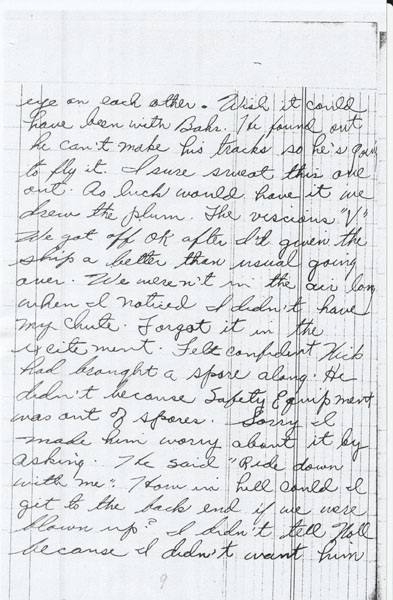 eye on each other. Wish it could
have been with Bahr. He found out
he can't make his tracks so he's goin
to fly it. I sure sweat this one
out. As luck would have it we
drew the plum. The viscious "V"
We got off OK after I'd given the
ship a better than usual going
over. We weren't in the air long
when I noticed I didn't have
my chute. Forgot it in the
excitement. Felt confident Nick
had brought a spare along. He
didn't because Safety Equipment
was out of spares. Sorry I
made him worry about it by
asking. He said "Ride down
with me". How in hell could I
get to the back end if we were
blown up? I didn't tell Noll
because I didn't want him
9